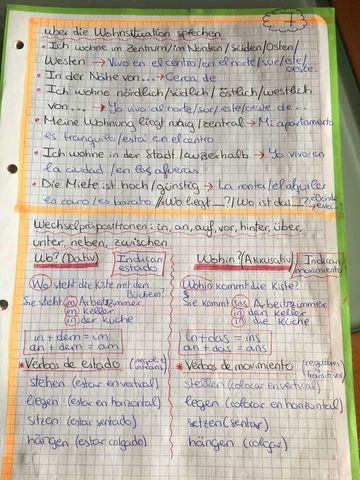 Über die Wohnsituation sprechen
• Ich wohne im Zentrum/im Norden/Süden/Osten/
Westen → Vivo en el centro/en el norte/sur/este/
oeste
• In der Nähe von... → Cerca de
• Ich wohne nördlich/südlich/östlich/westlich
von... → Yo vivo al norte/sur/este/oeste de...
• Meine Wohnung liegt ruhig/zentral → Mi apartamento
es tranquilo/está en el centro
• Ich wohne in der Stadt/außerhalb → Yo vivo en
la ciudad/en las afueras
• Die Miete ist hoch/günstig → La renta/el alquiler
es caro/es barato /Wo liegt_?/Wo ist das_? →¿Dónde
está
Wechselpräpositionen: in, an, auf, vor, hinter, über,
unter, neben, zwischen
Wo? (Dativ) Indican
estado
Wohin? (Akkusativ) Indican
movimiento
Wo steht die Kiste mit den
Büchern?
Sie steht im Arbeitszimmer
im Keller
in der Küche
in + dem = im
an + dem = am
Wohin kommt die Kiste?
Sie kommt ins Arbeitszimmer
in den Keller
in die Küche
in + das = ins
an + das = ans
* Verbos de estado
stehen (estar en vertical)
liegen (estar en horizontal)
sitzen (estar sentado)
hängen (estar colgado)
* Verbos de movimiento (regulares/
transitivos)
stellen (colocar en vertical)
legen (colocar en horizontal)
setzen (sentar)
hängen (colgar)